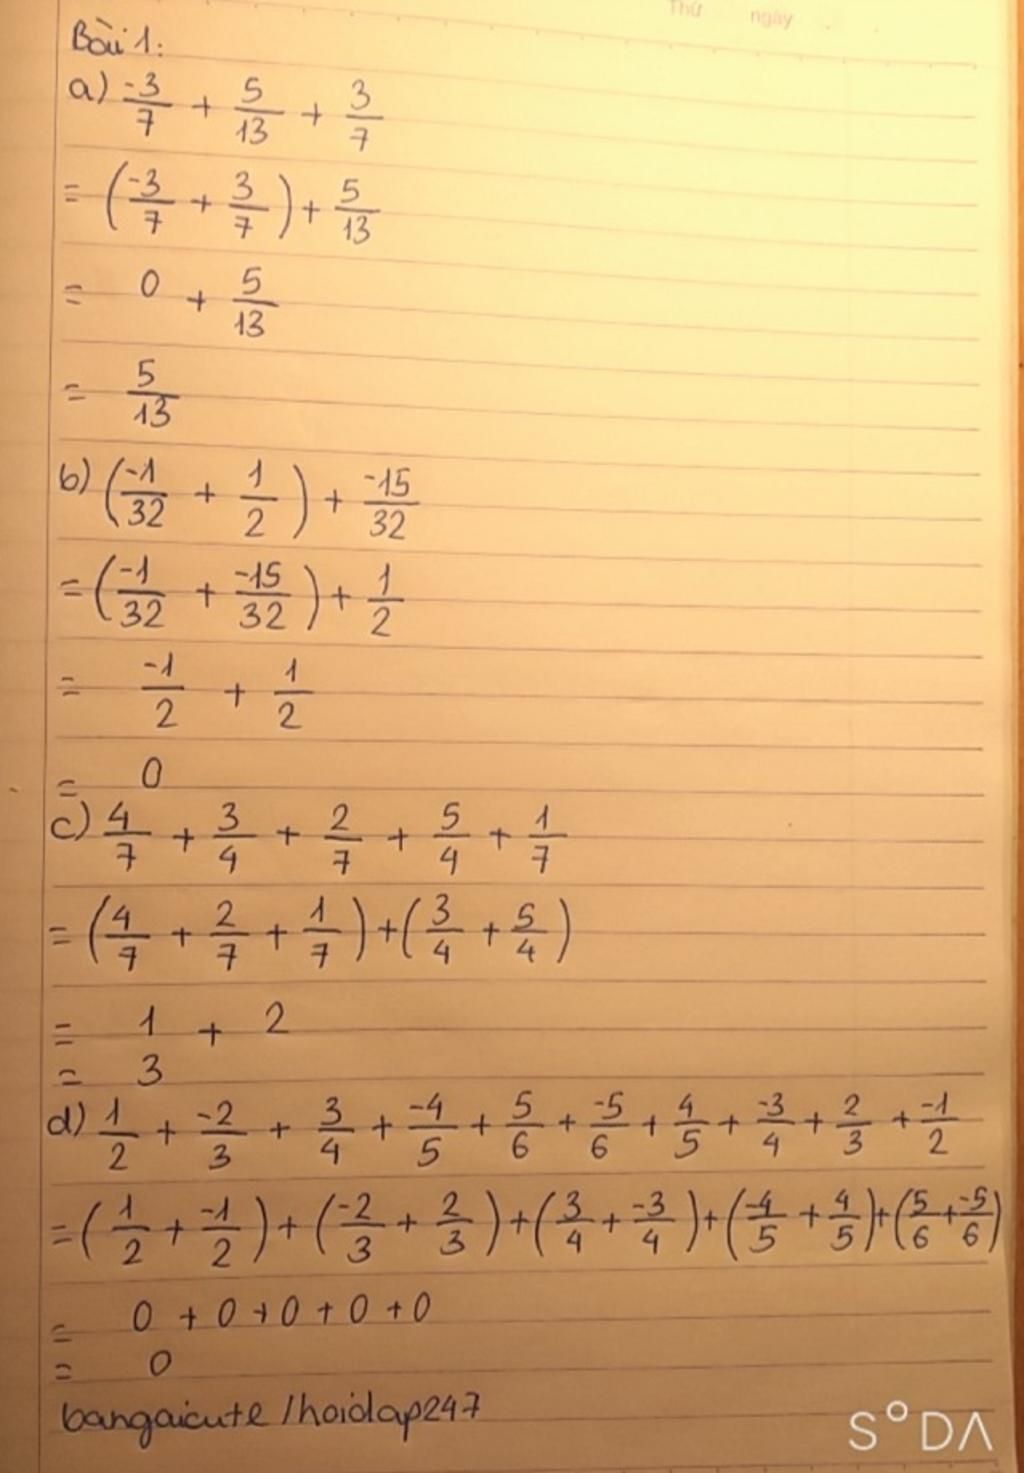 Thứ ngày
Bài 1:
a) -3/7 + 5/13 + 3/7
= (-3/7 + 3/7) + 5/13
= 0 + 5/13
= 5/13
b) (-1/32 + 1/2) + -15/32
= (-1/32 + -15/32) + 1/2
= -1/2 + 1/2
= 0
c) 4/7 + 3/4 + 2/7 + 5/4 + 1/7
= (4/7 + 2/7 + 1/7) + (3/4 + 5/4)
= 1 + 2
= 3
d) 1/2 + -2/3 + 3/4 + -4/5 + 5/6 + -5/6 + 4/5 + -3/4 + 2/3 + -1/2
= (1/2 + -1/2) + (-2/3 + 2/3) + (3/4 + -3/4) + (-4/5 + 4/5) + (5/6 + -5/6)
= 0 + 0 + 0 + 0 + 0
= 0
bangaicute /hoidap247
S°DA